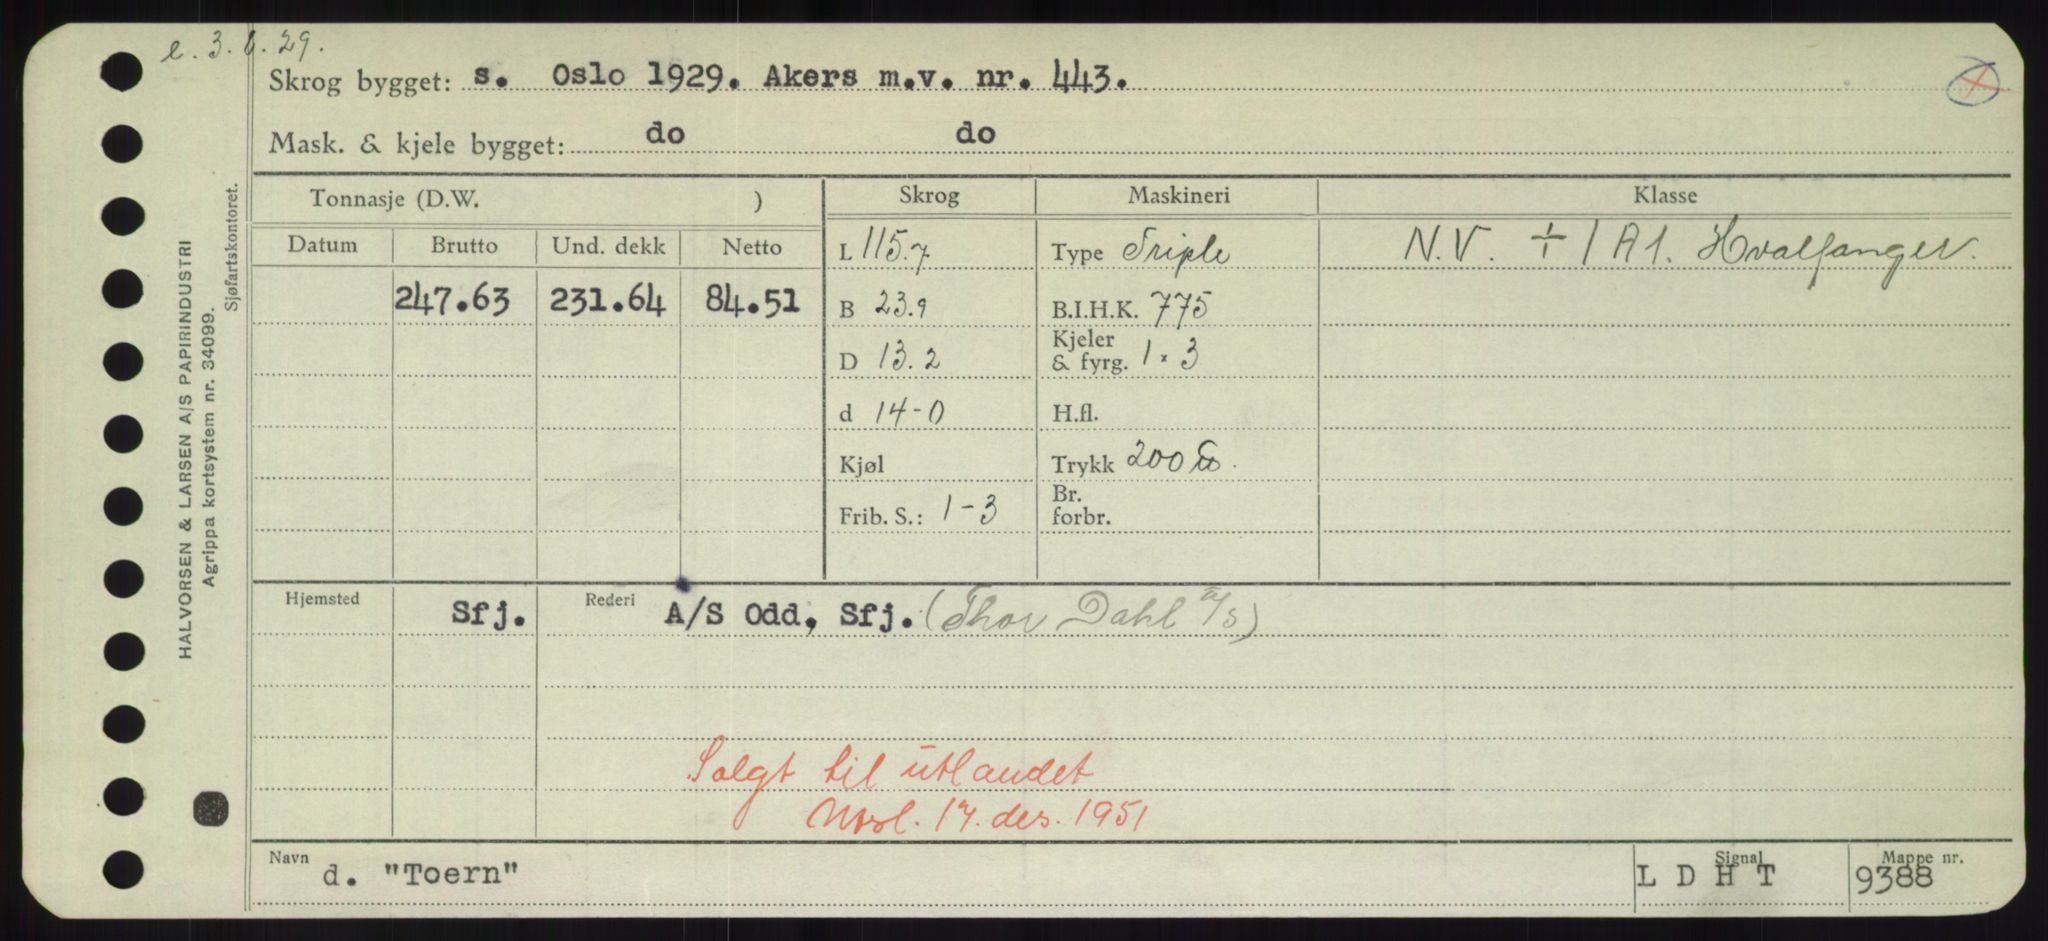 e. 3. 6. 29.
Skrog bygget: s. Oslo 1929. Akers m.v. nr. 443.
Mask. & kjele bygget: do do
Tonnasje (D.W. ) Skrog Maskineri Klasse
Datum Brutto Und. dekk Netto L 115.7 Type Triple N.V. + 1 A 1. Hvalfanger.
247.63 231.64 84.51 B 23.9 B.I.H.K. 775
D 13.2 Kjeler & fyrg. 1 × 3
d 14-0 H.fl.
Kjøl Trykk 200 lb.
Frib. S.: 1-3 Br. forbr.
Hjemsted Sfj. Rederi A/S Odd, Sfj. (Thor Dahl A/S)
Solgt til utlandet
17. des. 1951
Navn d. "Toern" Signal L D H T Mappe nr. 9388
HALVORSEN & LARSEN A/S PAPIRINDUSTRI
Agrippa kortsystem nr. 34099.
Sjøfartskontoret.